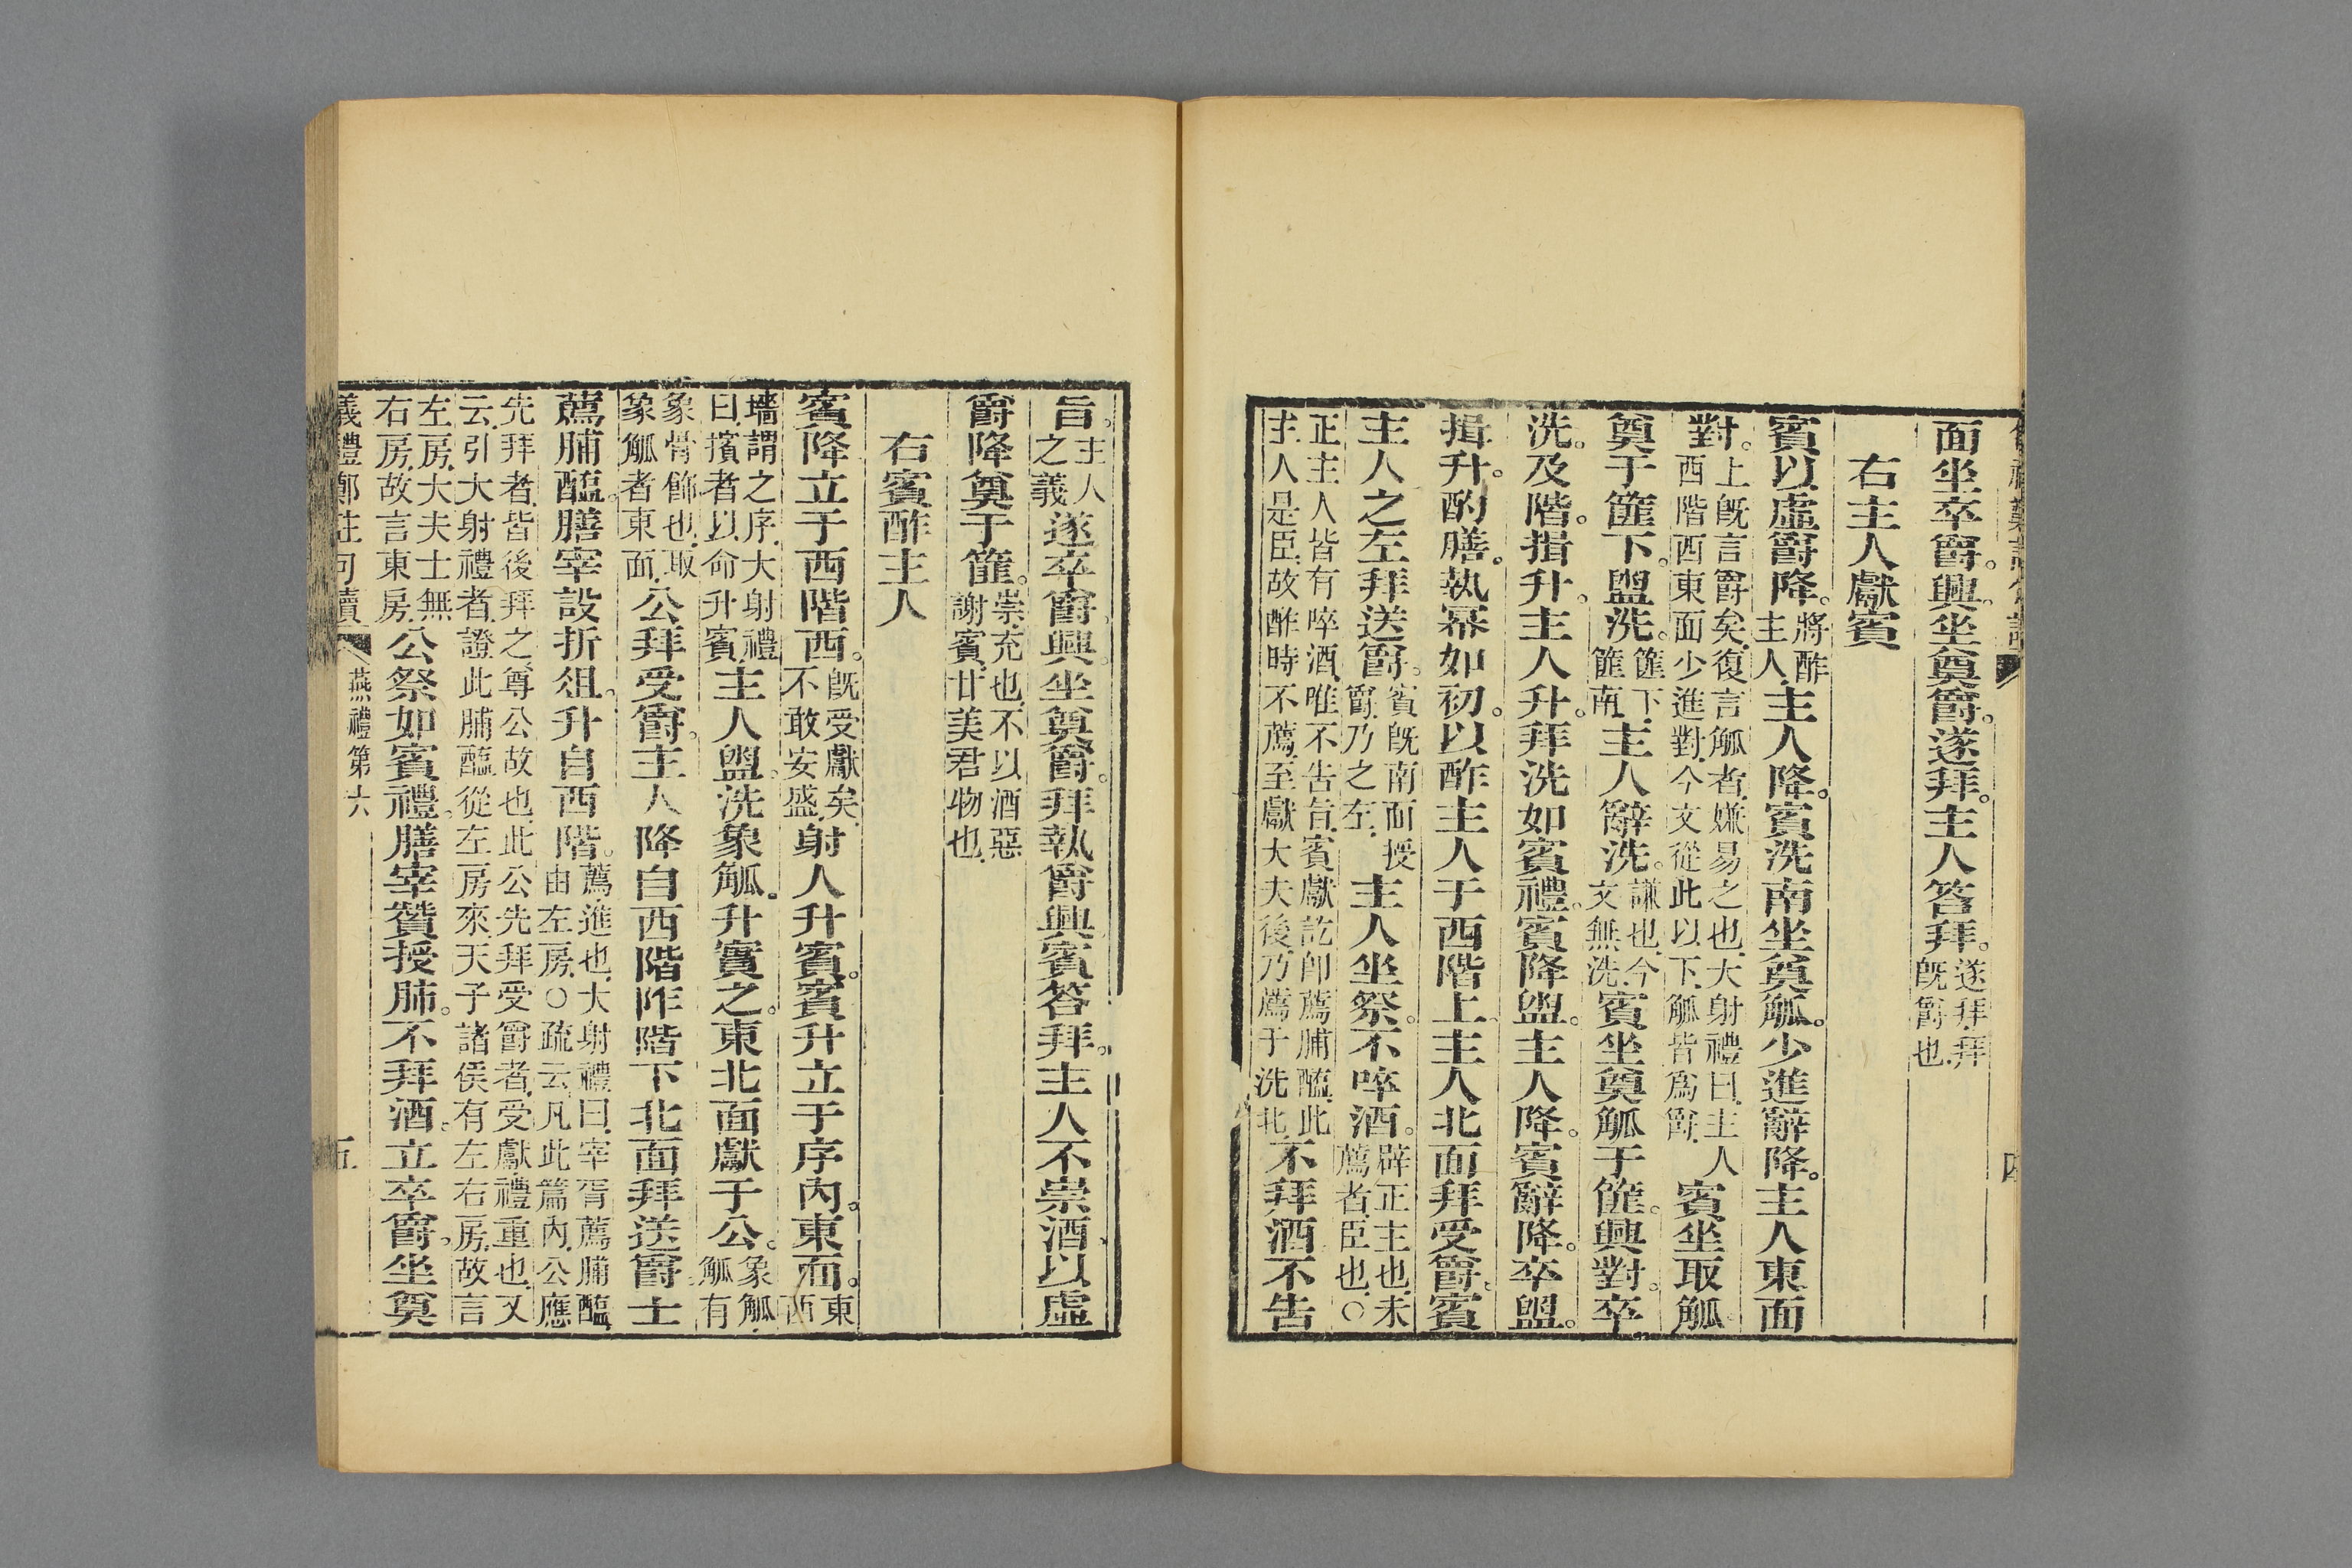 面坐卒爵。興。坐奠爵。遂拜。主人答拜。遂拜、拜既爵也、
右主人獻賓
賓以虛爵降。將酢主人、主人降。賓洗南坐奠觚。少進辭降。主人東面
對。上既言爵矣、復言觚者、嫌易之也、大射禮曰、主人西階西東面少進對、今文從此以下、觚皆爲爵、賓坐取觚。
奠于篚下。盥洗。篚下、篚南、主人辭洗。謙也、今文無洗、賓坐奠觚于篚。興對。卒
洗。及階。揖升。主人升。拜洗如賓禮。賓降盥。主人降。賓辭降。卒盥。
揖升。酌膳。執冪如初。以酢主人于西階上。主人北面拜受爵。賓
主人之左拜送爵。賓既南面授爵、乃之左、主人坐祭。不啐酒。辟正主也、未薦者、臣也、○
正主人皆有啐酒、唯不告旨、賓獻訖卽薦脯醢、此主人是臣、故酢時不薦、至獻大夫後、乃薦于洗北、不拜酒不告
旨。主人之義、遂卒爵。興。坐奠爵。拜執爵興。賓答拜。主人不崇酒以虛
爵降奠于篚。崇、充也、不以酒惡謝賓、甘美君物也、
右賓酢主人
賓降立于西階西。既受獻矣、不敢安盛、射人升賓。賓升立于序内。東面。東西
墻謂之序、大射禮曰、擯者以命升賓、主人盥。洗象觚。升實之。東北面獻于公。象觚、觚有
象骨飾也、取象觚者東面、公拜受爵。主人降自西階阼階下北面拜送爵。士
薦脯醢。膳宰設折俎。升自西階。薦、進也、大射禮曰、宰胥薦脯醢、由左房、○疏云、凡此篇內、公應
先拜者、皆後拜之、尊公故也、此公先拜受爵者、受獻禮重也、又云、引大射禮者、證此脯醢從左房來、天子諸侯有左右房、故言
左房、大夫士無右房、故言東房、公祭如賓禮。膳宰贊授肺。不拜酒。立卒爵。坐奠
儀禮鄭註句讀
燕禮第六
五